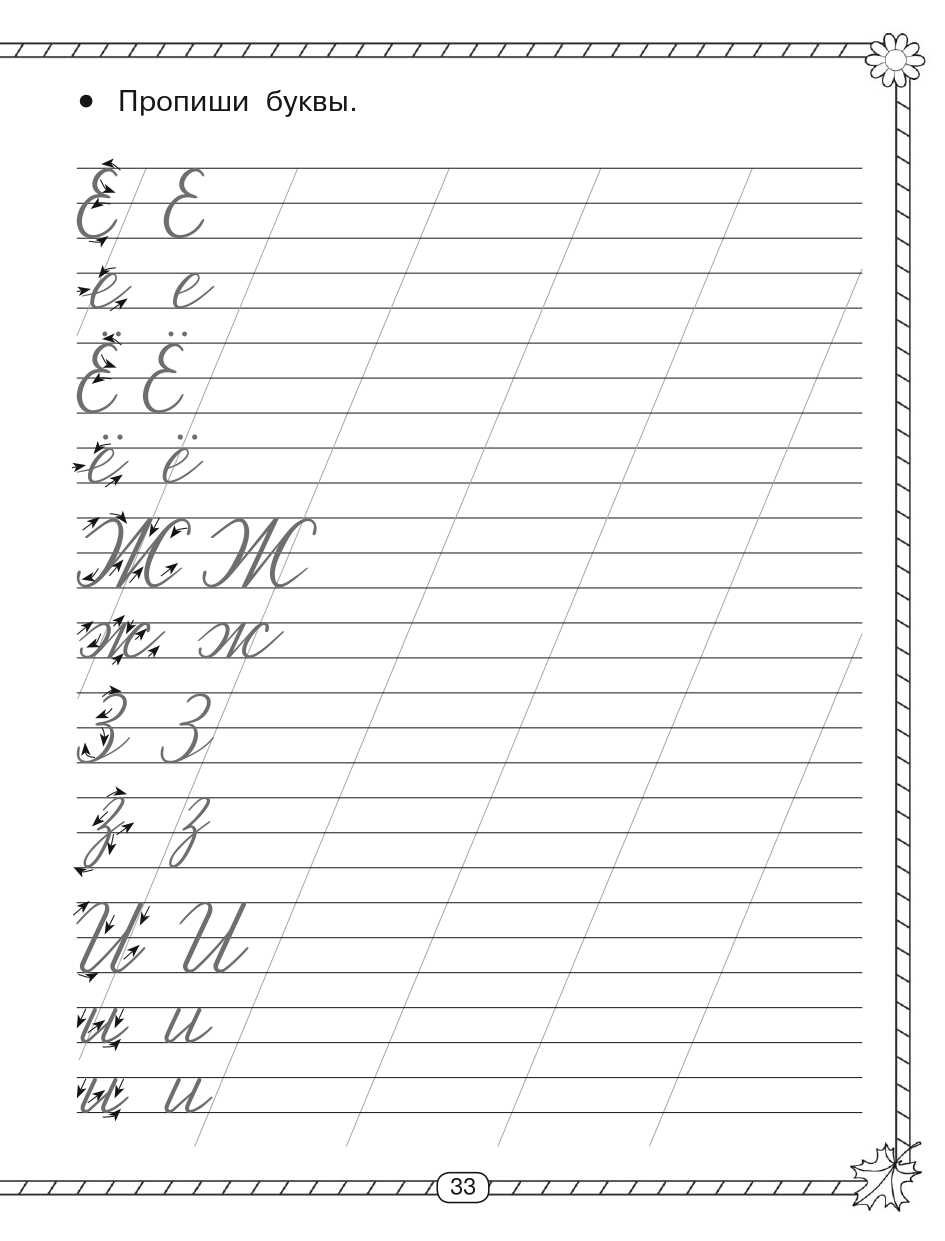 • Пропиши буквы.
Е Е
е е
Ё Ё
ё ё
Ж Ж
ж ж
З З
з з
И И
и и
и и
33